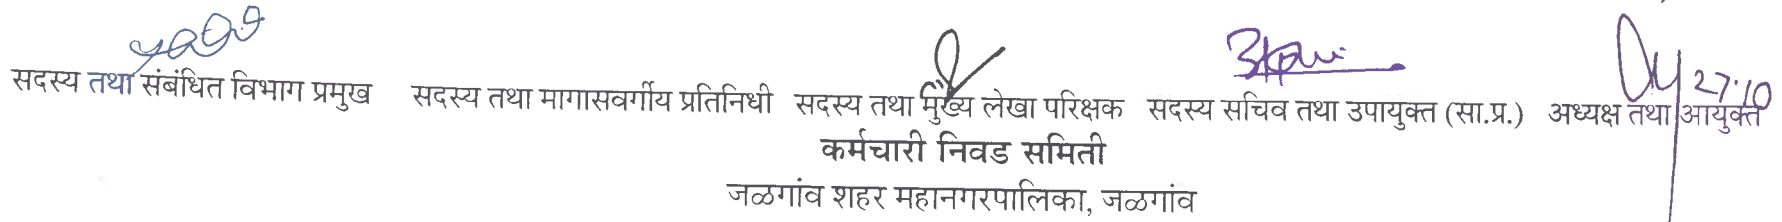 सदस्य तथा संबंधित विभाग प्रमुख सदस्य तथा मागासवर्गीय प्रतिनिधी सदस्य तथा मुख्य लेखा परिक्षक सदस्य सचिव तथा उपायुक्त (सा.प्र.) अध्यक्ष तथा आयुक्त
27.10
कर्मचारी निवड समिती
जळगांव शहर महानगरपालिका, जळगांव